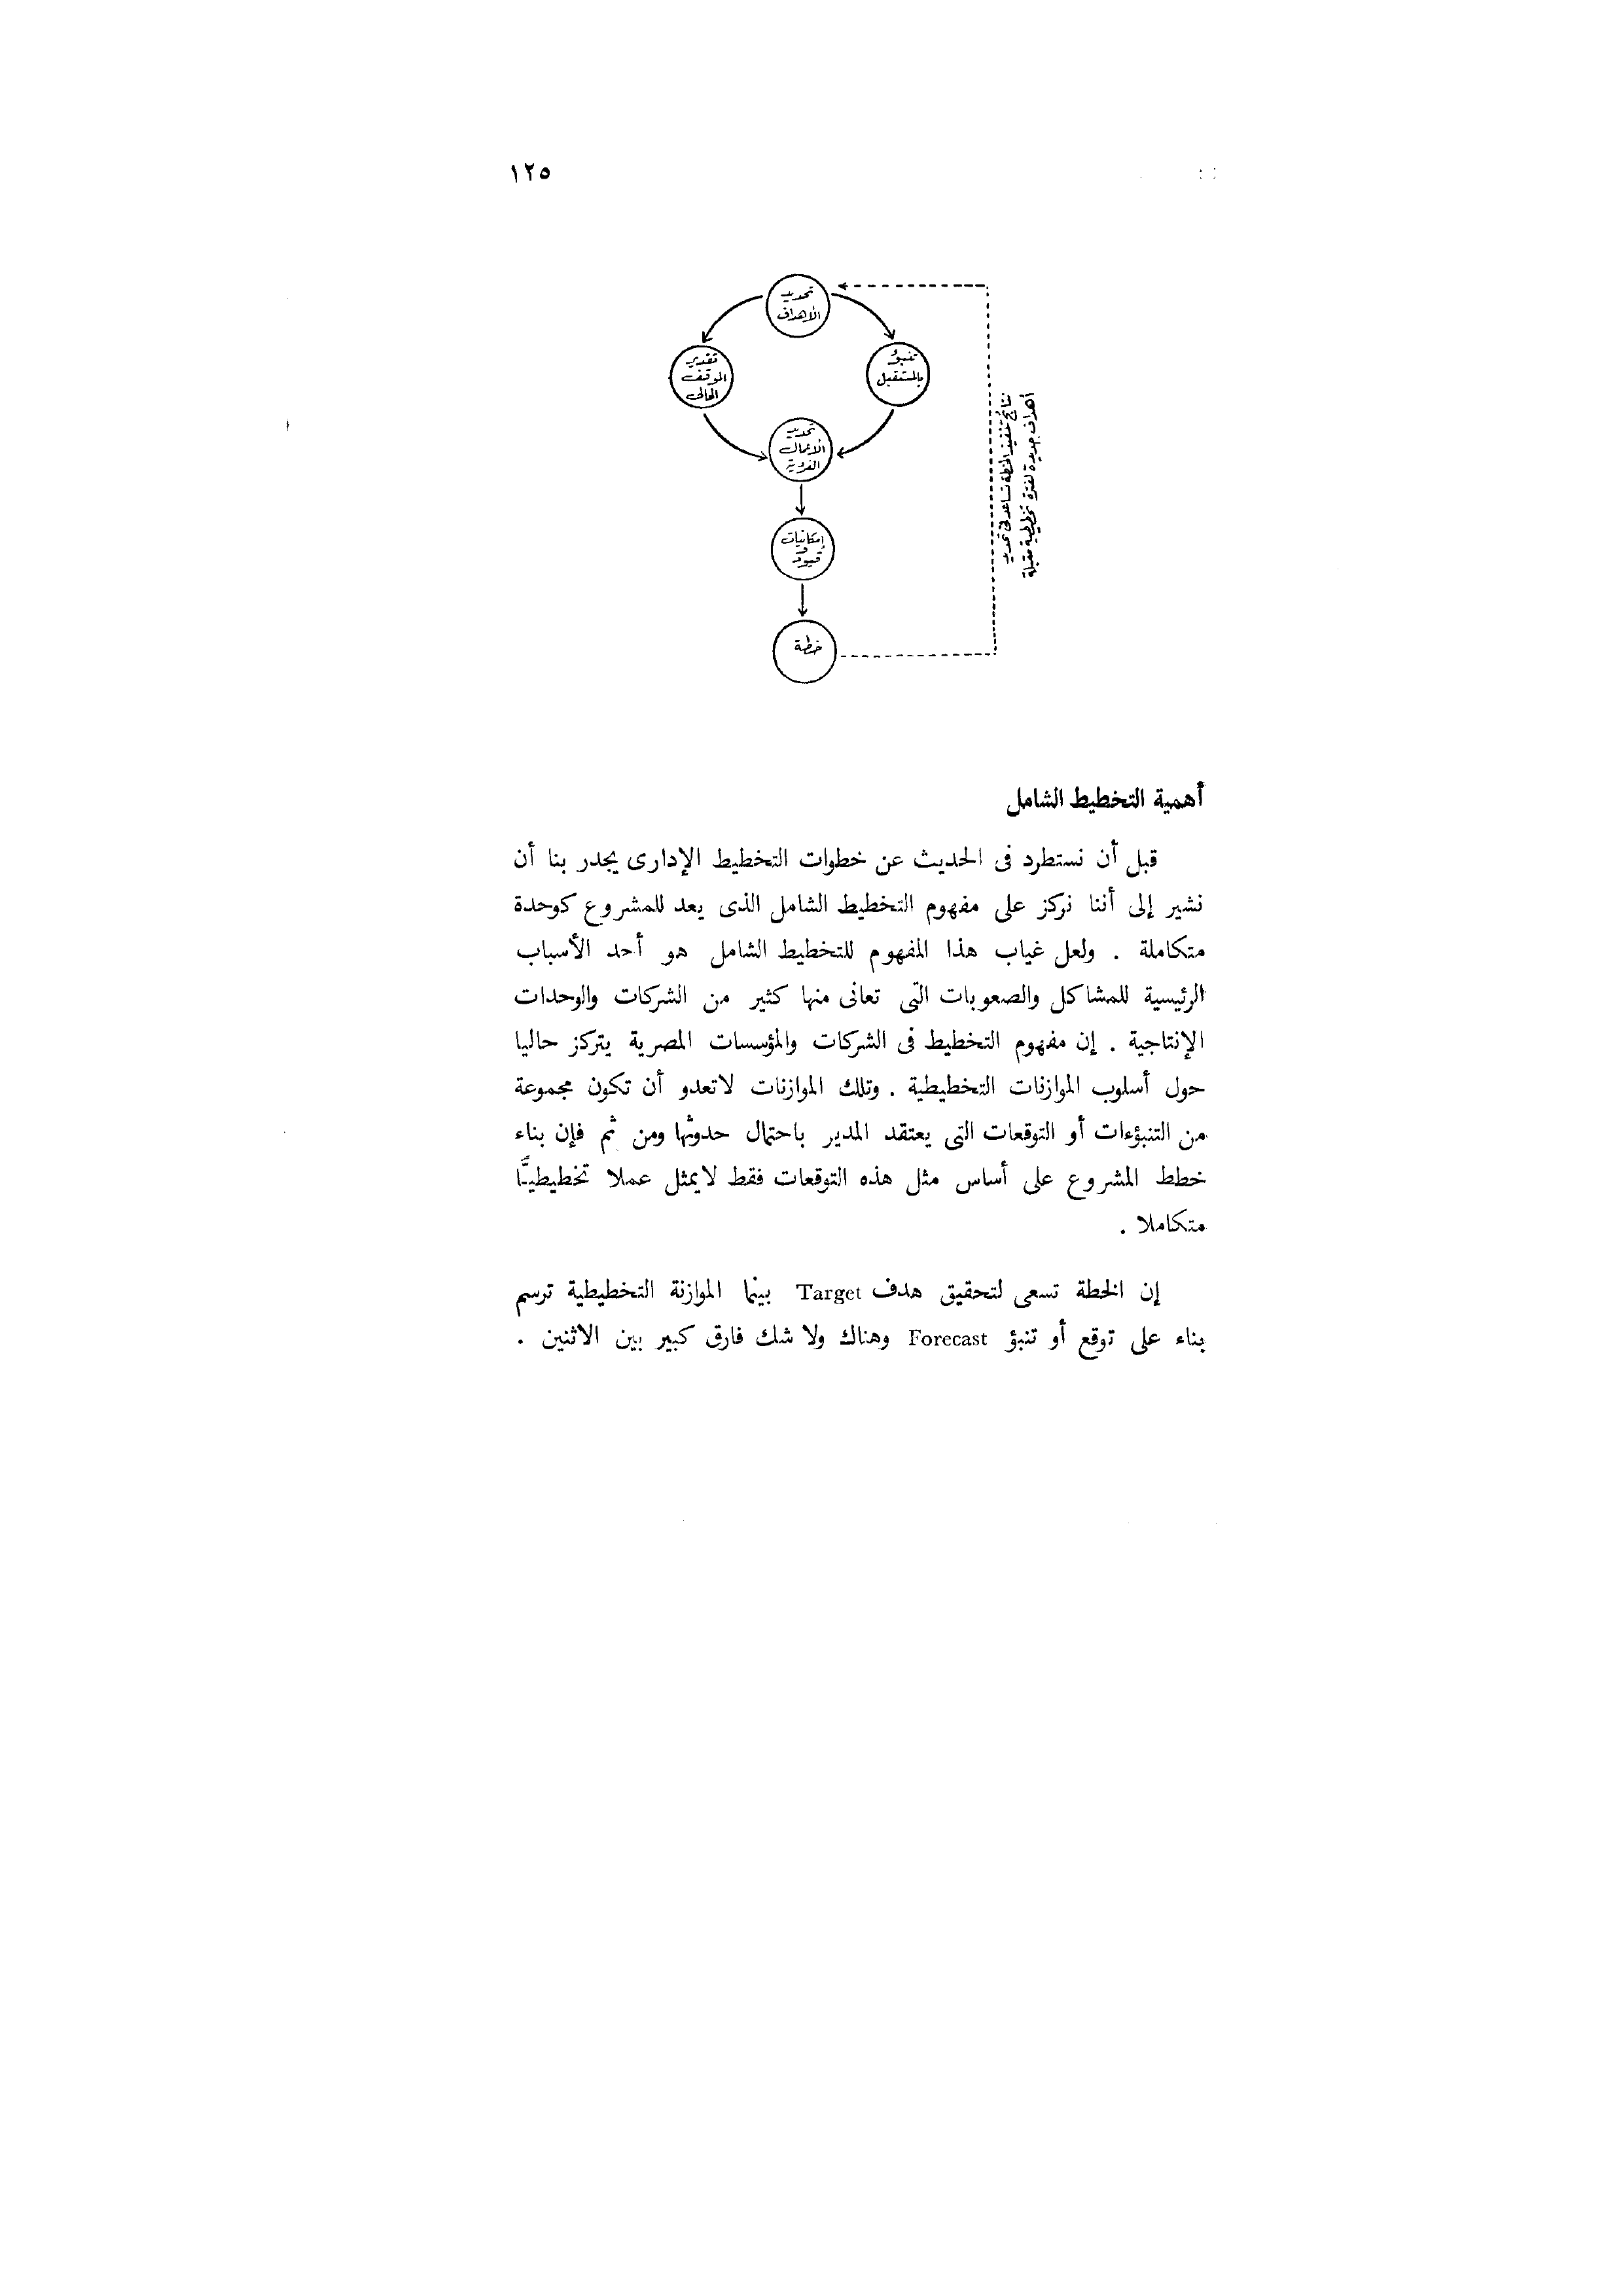 ١٢٥
تحديد
الأهداف
تنبؤ
بالمستقبل
تقدير
الموقف
الحالى
تحديد
الأعمال
الضرورية
إمكانيات
و
قيود
خطة
نتائج تنفيذ الخطة تساعد فى تحديد
أهداف جديدة لفترة تخطيطية مقبلة
أهمية التخطيط الشامل
قبل أن نستطرد فى الحديث عن خطوات التخطيط الإدارى يجدر بنا أن
نشير إلى أننا نركز على مفهوم التخطيط الشامل الذى يعد للمشروع كوحدة
متكاملة . ولعل غياب هذا المفهوم للتخطيط الشامل هو أحد الأسباب
الرئيسية للمشاكل والصعوبات التى تعانى منها كثير من الشركات والوحدات
الإنتاجية . إن مفهوم التخطيط فى الشركات والمؤسسات المصرية يتركز حاليا
حول أسلوب الموازنات التخطيطية . وتلك الموازنات لاتعدو أن تكون مجموعة
من التنبؤءات أو التوقعات التى يعتقد المدير باحتمال حدوثها ومن ثم فإن بناء
خطط المشروع على أساس مثل هذه التوقعات فقط لايمثل عملا تخطيطيًّا
متكاملا .
إن الخطة تسعى لتحقيق هدف Target بينما الموازنة التخطيطية ترسم
بناء على توقع أو تنبؤ Forecast وهناك ولا شك فارق كبير بين الاثنين .